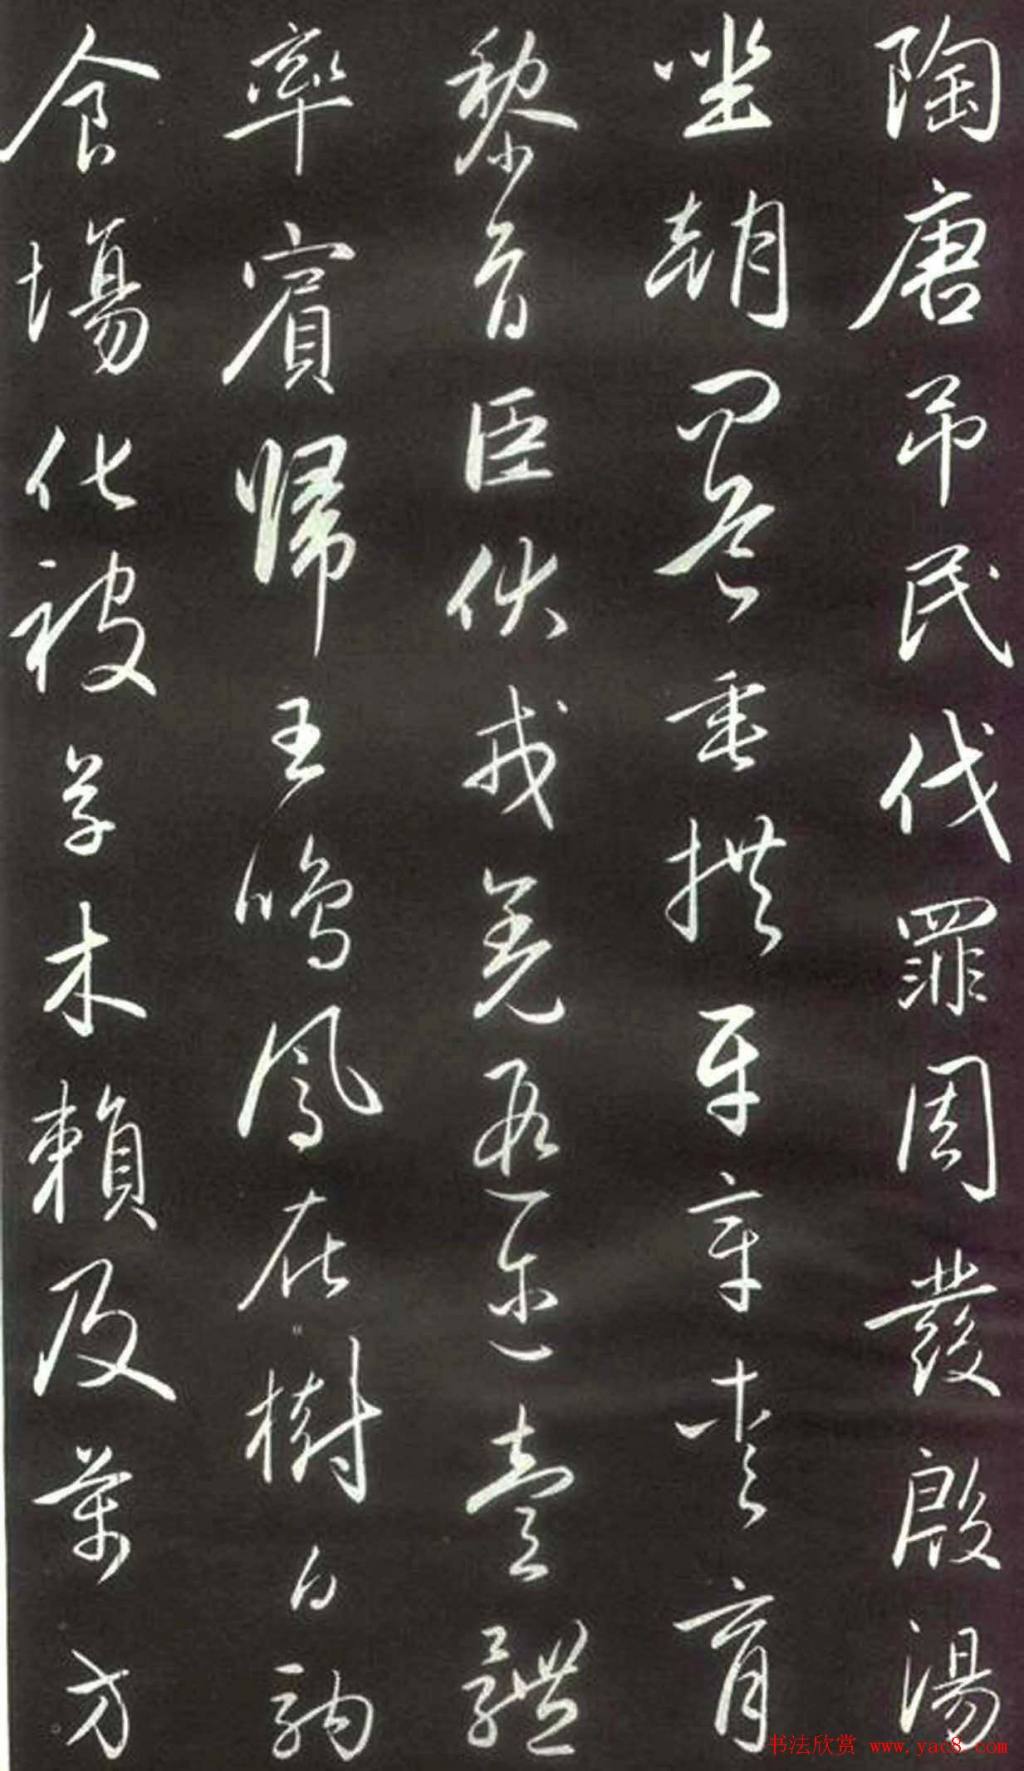 陶唐吊民伐罪周發殷湯
坐朝問道垂拱平章愛育
黎首臣伏戎羌遐邇壹體
率賓歸王鳴鳳在樹白駒
食場化被草木賴及萬方
书法欣赏 www.yac8.com